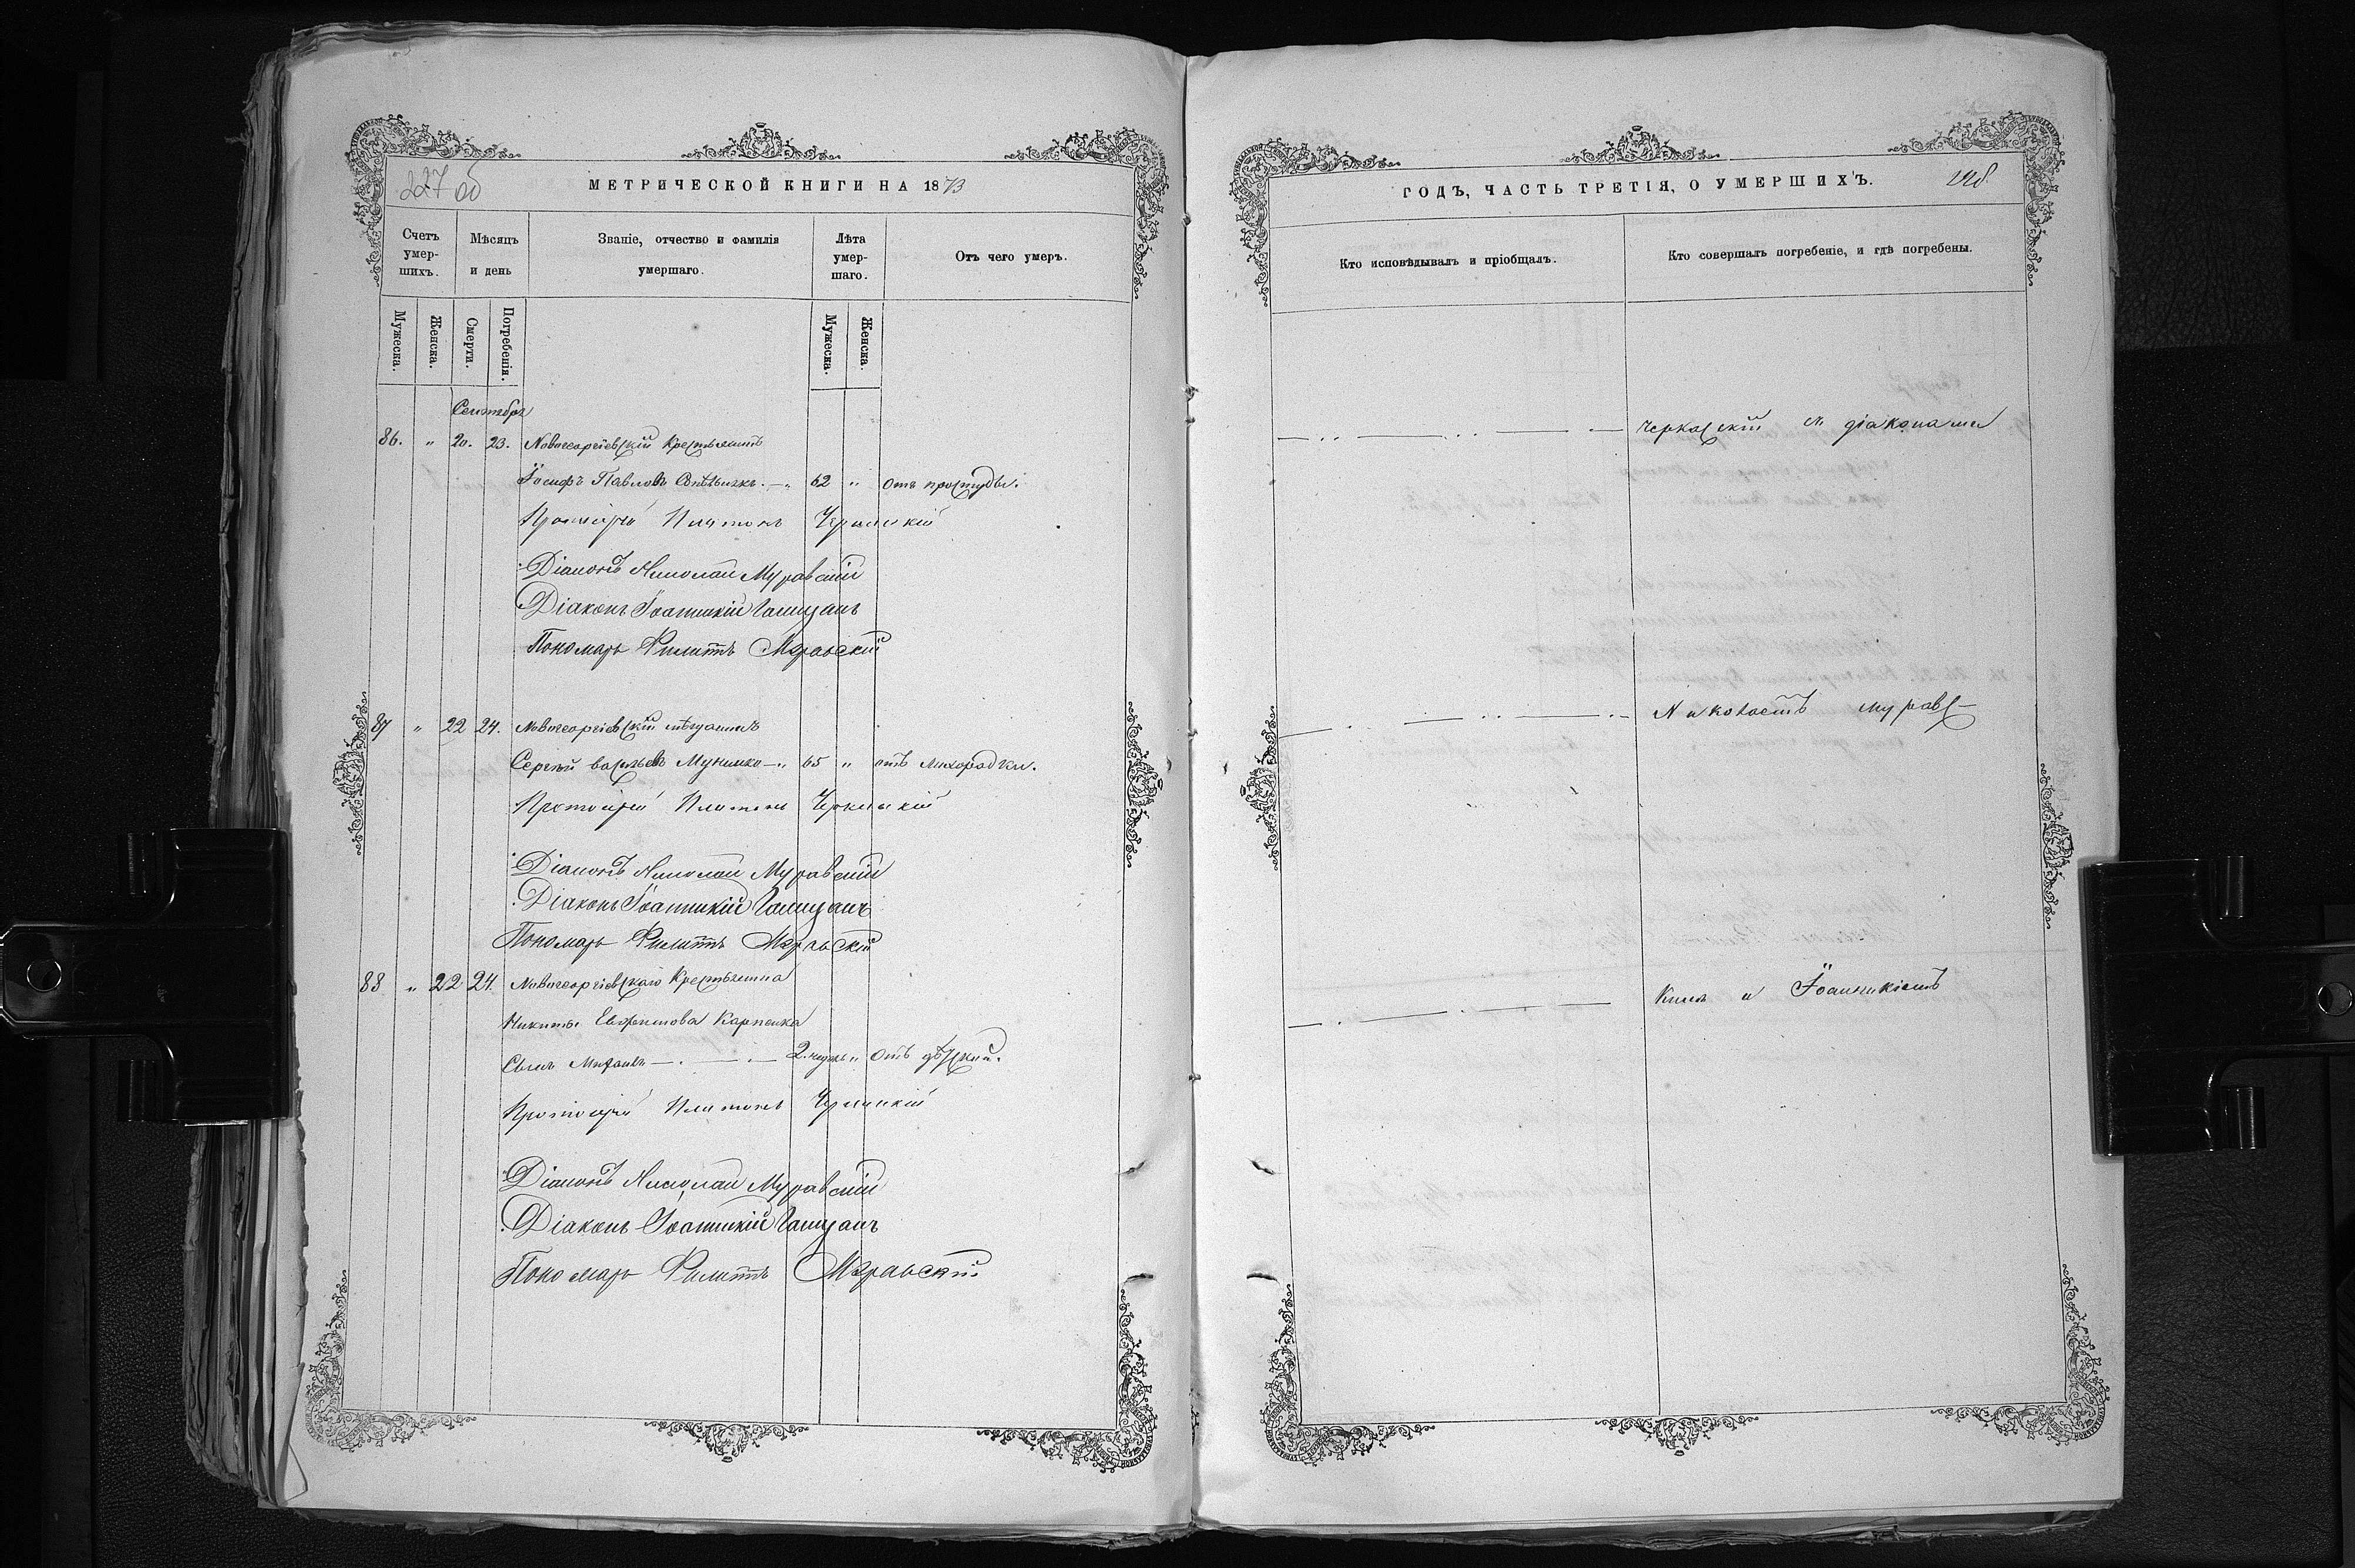 227 об
МЕТРИЧЕСКОЙ КНИГИ НА 1873
Счетъ умер-шихъ.
Мѣсяцъ и день
Званіе, отчество и фамилія умершаго.
Лѣта умер-шаго.
Отъ чего умеръ.
Мужеска.
Женска.
Смерти.
Погребенія.
Мужеска.
Женска.
Сентябрь
86. " 20. 23. Новогеоргіевскій Крестьянинъ
Іосифъ Павловъ 62 " отъ простуды.
Протоіерей Платонъ Черкаскій
Діаконъ Николай Муравскій
Діаконъ Іоанникій
Пономарь Филиппъ Муравскій
87 " 22 24. Новогеоргіевскій мѣщанинъ
Сергѣй Васильевъ 65 " отъ лихорадки.
Протоіерей Платонъ Черкаскій
Діаконъ Николай Муравскій
Діаконъ Іоанникій
Пономарь Филиппъ Муравскій
88 " 22 24. Новогеоргіевскаго Крестьянина
Никиты Евфимова Карпенка
Сынъ Михаилъ 2. недѣль " отъ дѣтской.
Протоіерей Платонъ Черкаскій
Діаконъ Николай Муравскій
Діаконъ Іоанникій
Пономарь Филиппъ Муравскій
ГОДЪ, ЧАСТЬ ТРЕТІЯ, О УМЕРШИХЪ.
228
Кто исповѣдывалъ и пріобщалъ.
Кто совершалъ погребеніе, и гдѣ погребены.
Черкаскій съ діаконами
Николаемъ Муравс-
кимъ и Іоанникіемъ